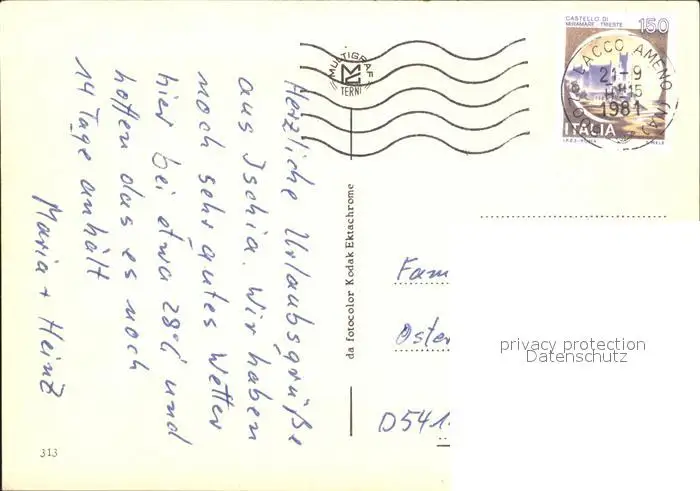 Herzliche Urlaubsgrüße
aus Ischia. Wir haben
noch sehr gutes Wetter
hier bei etwa 28°C und
hoffen das es noch
14 Tage anhält
Maria + Heinz
313
da fotocolor Kodak Ektachrome
MULTIGRAF
TERNI
CASTELLO DI
MIRAMARE - TRIESTE
150
LACCO AMENO (NA)
21-9
1981
ITALIA
Fam
Oster
D541
privacy protection
Datenschutz